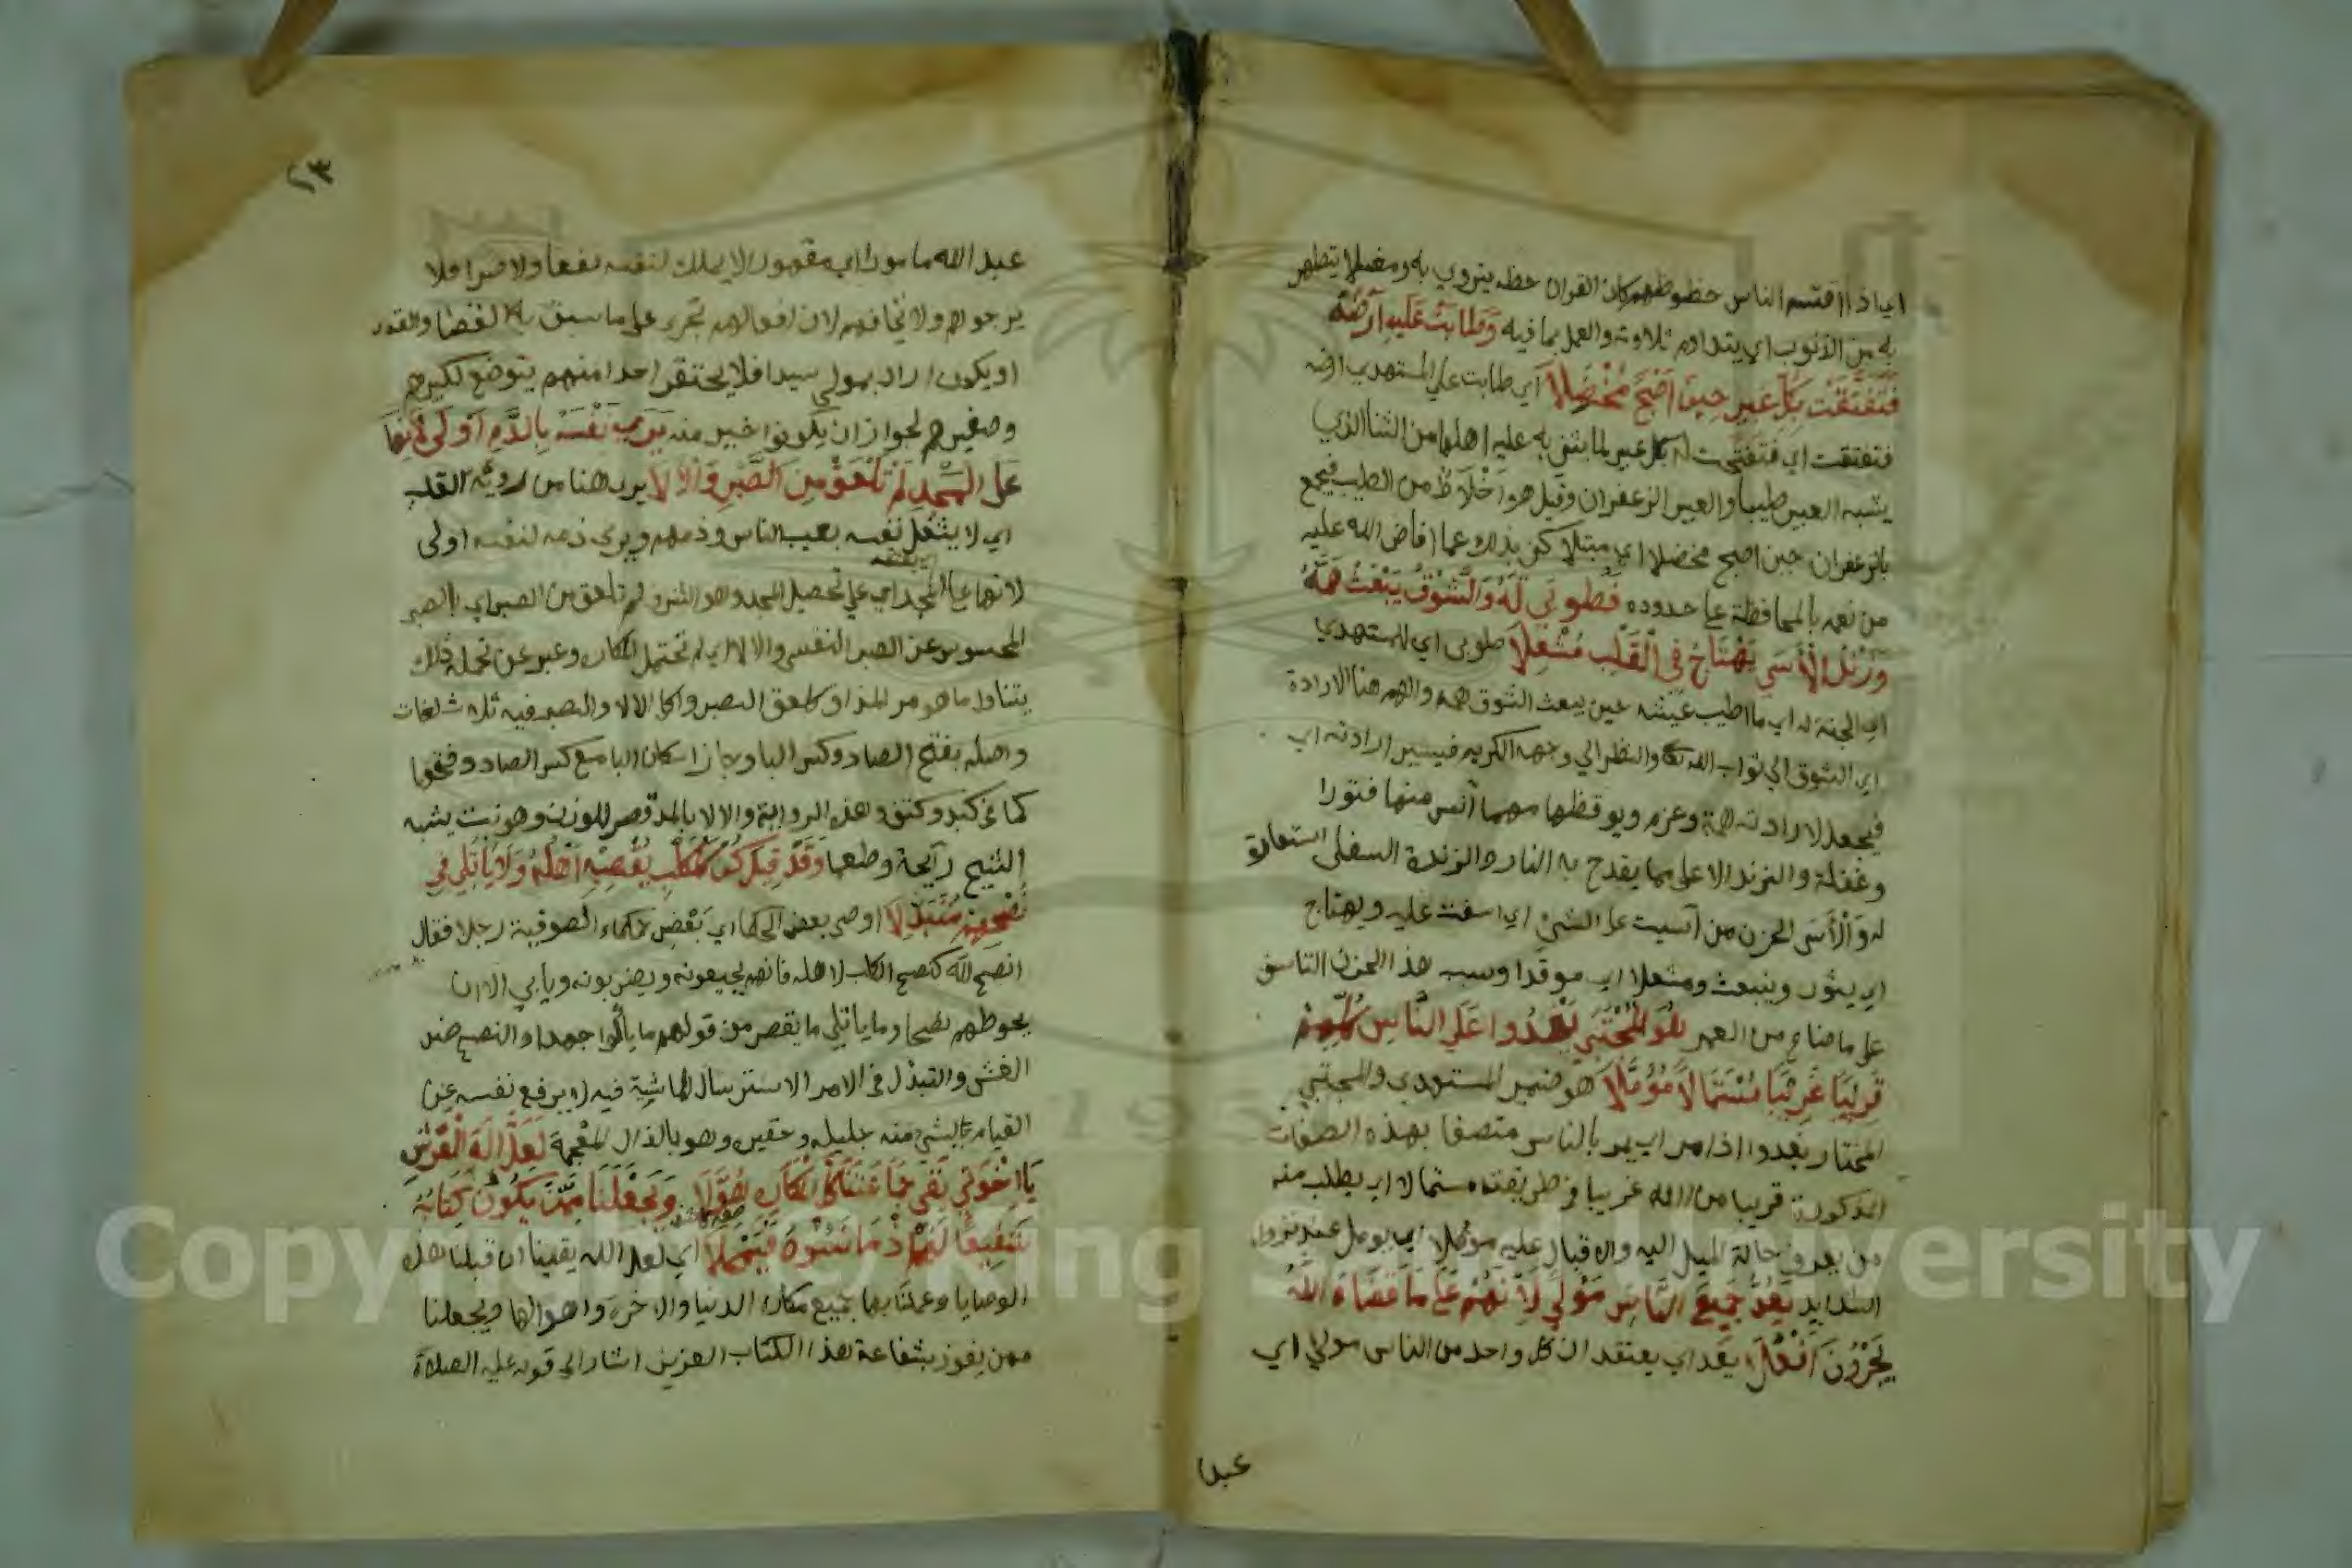 اي اذا اقتسم الناس حظوظهم كان القران حظه يتروي به ومغسلا يتطهر
به من الذنوب اي يتداوم تلاوته والعمل بما فيه وَطَابَتْ عَلَيْهِ أَرْضُهُ
فَتَفَتَّقَتْ بِكُلِّ عَبِيرٍ حِينَ أَصْبَحَ مُخْضَلاَ اي طابت علي المستهدي ارضه
فتفتقت اي فتفتحت له بكل عبير لما يثني به عليه اهلها من الثنا الذي
يشبه العبير طيبا والعبير الزعفران وقيل هو أَخْلَاطٌ من الطيب فيجمع
بالزعفران حين اصبح مخضلا اي مبتلا كني بذلك عما افاض الله عليه
من نعمه بالمحافظة علي حدوده فَطُوبَى لَهُ وَالشَّوْقُ يَبْعَثُ هَمَّهُ
وَزَنْدُ الْأَسَى يَهْتَاجُ فِي الْقَلْبِ مُشْعِلاَ طوبى اي للمستهدي
اي الجنة له اي ما اطيب عيشه حين يبعث الشوق همه والهم هنا الارادة
اي الشوق الي ثواب الله تعا والنظر الي وجهه الكريم فيسير ارادته اي
فيجعل لارادته همة وعزم ويوقظها مهما آنس منها فتورا
وغفلة والزند الاعلى مما يقدح به النار والزندة السفلى استعارة
له وَالْأَسَى الحزن من أسيت على الشئ اي اسفت عليه ويهتاج
اي يثور وينبعث ومشعلا اي موقدا وسبب هذا الحزن التاسف
علي ما ضاع من العمر هُوَ الْمُجْتَبَى يَغْدُوا عَلَى النَّاسِ كُلِّهِمْ
قَرِيبًا غَرِيبًا مُسْتَمَالاً مُؤَمَّلاَ هو ضمير المستهدي والمجتبي
المختار يغدوا اذا مر اي يمر بالناس متصفا بهذه الصفات
المذكورة قريبا من الله غريبا في طريقته مستمالا اي يطلب منه
من يعرف حالة الميل اليه والاقبال عليه مؤملا اي يومل عند نزول
الشدايد يَعُدُّ جَمِيعَ النَّاسِ مَوْلًى لِأَنَّهُمْ عَلَى مَا قَضَاهُ اللهُ
يُجْرُونَ أَفْعُلاَ يعد اي يعتقد ان كل واحد من الناس مولي اي
عبدا
٢٣
عبد الله مامورا اي مقهورا لا يملك لنفسه نفعا ولا ضرا فلا
يرجوهم ولا يخافهم لان افعالهم تجري على ما سبق به القضا والقدر
او يكون اراد بمولي سيدا فلا يحتقر احدا منهم يتوضع لكبيرهم
وصغيرهم لجواز ان يكونوا خير منه يَرَى نَفْسَهُ بِالذَّمِّ أَوْلَى لِأَنَّهَا
عَلَى الْمَجْدِ لَمْ تَلْعَقْ مِنَ الصَّبْرِ وَالْأَلاَ يرى هنا من رؤية القلب
اي لا يشغل نفسه بعيب الناس وذمهم ويري ذمه لنفسه اولى
لانها على المجد اي علي تحصيل المجد وهو الشرف لم تلعق من الصبر اي الصبر
المحسوس عن الصبر النفسي والالا اي لم تحتمل المكاره وعبر عن تحمله ذلك
يتناول ما هو مر المذاق كلعق الصبر واكل الالا والصبر فيه ثلاث لغات
واصله بفتح الصاد وكسر البا وجاز اسكان البا مع كسر الصاد وفتحها
كما في كبد وكتف وهذه الرواية والالا بالمد قصر للوزن وهو نبت يشبه
الشيح رائحة وطعما وَقَدْ قِيلَ كُنْ كَالْكَلْبِ يُقْصِيهِ أَهْلُهُ وَلاَ يَأْتَلِي فِي
نُصْحِهِمْ مُتَبَذِّلاَ اوصى بعض الحكما اي بَعْضُ حكماء الصوفية رجلا فقال
انصح لله كنصح الكلب لاهله فانهم يجيعونه ويضربونه ويابي الا ان
يحوطهم نصحا وما ياتلي ما يقصر من قولهم ما يألوا جهدا والنصح ضد
الغش والتبذل في الامر الاسترسال فيه لا يرفع نفسه عن
القيام بالشي منه جليله وحقيره وهو بالذال المعجمة لَعَلَّ إِلَهَ الْعَرْشِ
يَا إِخْوَتِي يَقِي جَمَاعَتَنَا كُلَّ الْمَكَارِهِ هُوَّلاَ وَيَجْعَلُنَا مِمَّنْ يَكُونُ كِتَابُهُ
شَفِيعًا لَهُمْ إِذْ مَا نَسُوهُ فَيَمْحَلاَ اي لعل الله يقينا ان قبلنا هذه
الوصايا وعملنا بها جميع مكاره الدنيا والاخرة واهوالها ويجعلنا
ممن يفوز بشفاعة هذا الكتاب العزيز اشار الى قوله عليه الصلاة
Copyright © King Saud University